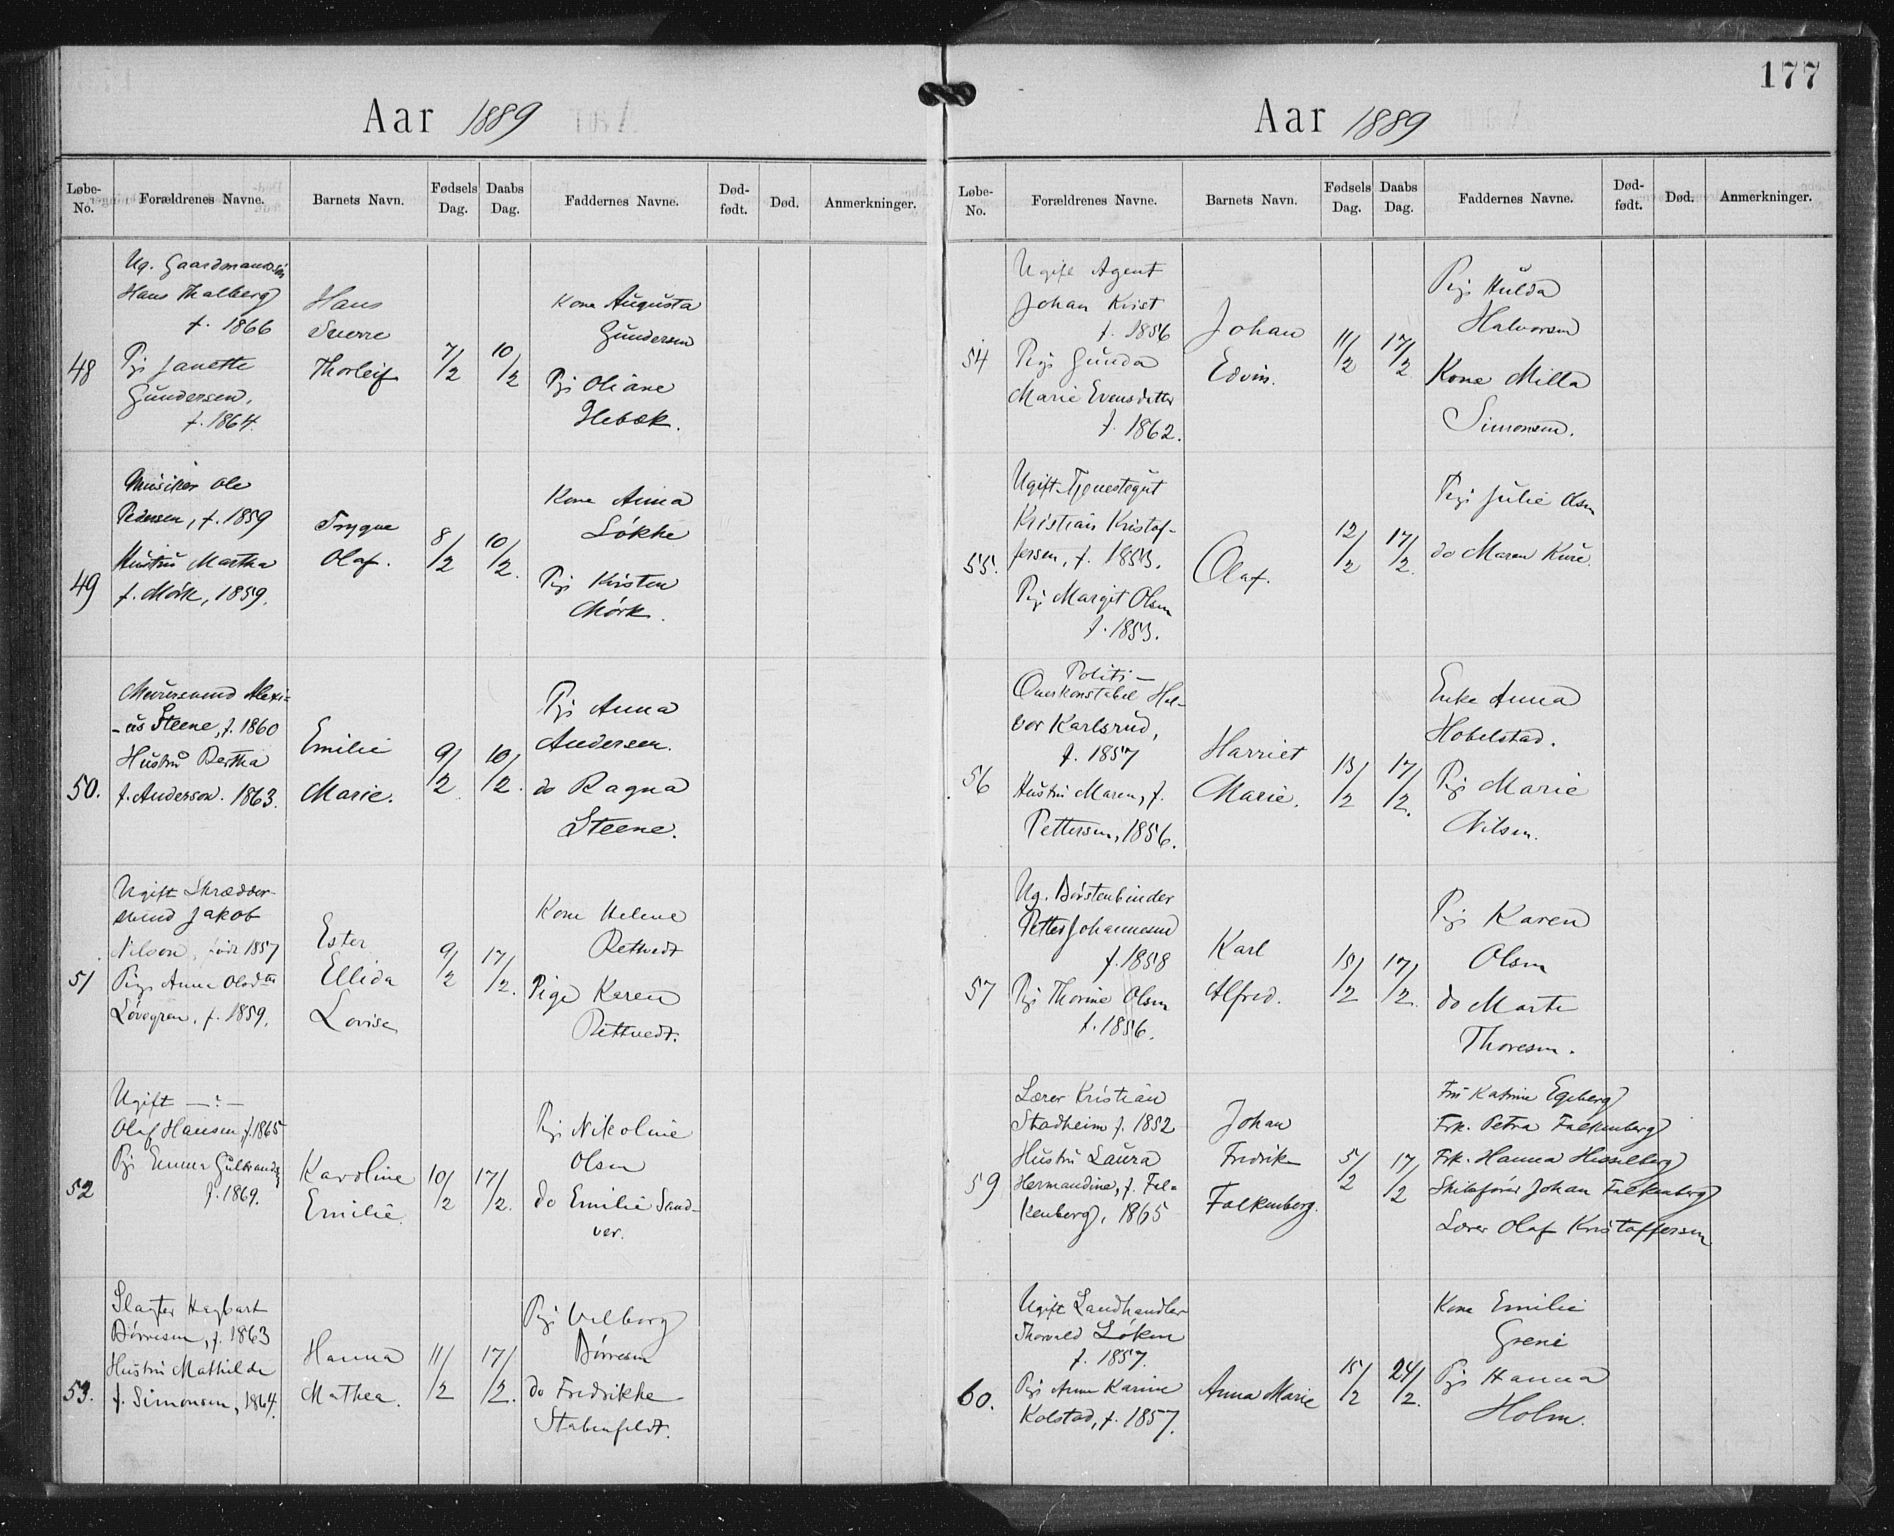 Aar 1889
Løbe-No.
Forældrenes Navne.
Barnets Navn.
Fødsels Dag.
Daabs Dag.
Faddernes Navne.
Død-født.
Død.
Anmerkninger.
48
Ug. Gaardmandssøn
Hans Thalberg
f. 1866
Pige Janette
Gundersen.
f. 1864.
Hans
Sverre
Thorleif
7/2
10/2
Kone Augusta
Gundersen
Pige Oliane
Hebæk.
49
Musiker Ole
Pedersen, f. 1859
Hustru Martha
f. Mörk, 1859.
Trygve
Olaf.
8/2
10/2.
Kone Anna
Løkke
Pige Kirsten
Mörk.
50.
Muursvend Alexi-
-us Steene, f. 1860
Hustru Bertha
f. Anderson. 1863.
Emilie
Marie.
9/2
10/2.
Pige Anna
Andersen.
do Ragna
Steene.
51
Ugift Skrædder-
svend Jakob
Nilson, født 1857
Pige Anna Olsdtr
Lövgren, f. 1859.
Ester
Ellida
Lovise
9/2
17/2.
Kone Helene
Rettvedt
Pige Karen
Rettvedt.
52
Ugift —:—
Olaf Hansen, f. 1865
Pige Emma Gulbrands
f. 1869.
Karoline
Emilie.
10/2
17/2.
Pige Nikoline
Olsen
do Emilie Sand-
ver.
53.
Slagter Hagbart
Börresen, f. 1863
Hustru Mathilde
f. Simonsen, 1864.
Hanna
Mathea.
11/2
17/2.
Pige Valborg
Börresen
do Fredrikke
Stabenfeldt.
177
Aar 1889
Løbe-No.
Forældrenes Navne.
Barnets Navn.
Fødsels Dag.
Daabs Dag.
Faddernes Navne.
Død-født.
Død.
Anmerkninger.
54
Ugift Agent
Johan Krist
f. 1856
Pige Gunda
Marie Evensdatter
f. 1862.
Johan
Edvin.
11/2
17/2
Pige Hulda
Halvorsen
Kone Milla
Simonsen.
55.
Ugift Tjenestegut
Kristian Kristof-
fersen, f. 1853.
Pige Margit Olsen
f. 1853.
Olaf.
12/2
17/2.
Pige Julie Olsen
do Maren Kure.
56
Politi-
Overkonstabel Hal-
vor Karlsrud,
f. 1857
Hustru Maren, f.
Pettersen, 1856.
Harriet
Marie.
13/2
17/2.
Enke Anna
Hobelstad.
Pige Marie
Nilsen.
57
Ug. Börstenbinder
Petter Johannesen
f. 1858
Pige Thorine Olsen
f. 1856.
Karl
Alfred.
15/2
17/2.
Pige Karen
Olsen
do Marte
Thoresen.
59
Lærer Kristian
Stadheim f. 1852
Hustru Laura
Hermandine, f. Fal-
kenberg, 1865
Johan
Fredrik
Falkenberg.
5/2
17/2
Fru Katrine Egeberg
Frk. Petra Falkenberg
Frk. Hanna Hesselberg
Skibsfører Johan Falkenberg
Lærer Olaf Kristoffersen
60.
Ugift Landhandler
Thorvald Løken
f. 1857.
Pige Anne Karine
Kolstad, f. 1857.
Anna Marie
15/2
24/2.
Kone Emilie
Grene
Pige Hanna
Holm.